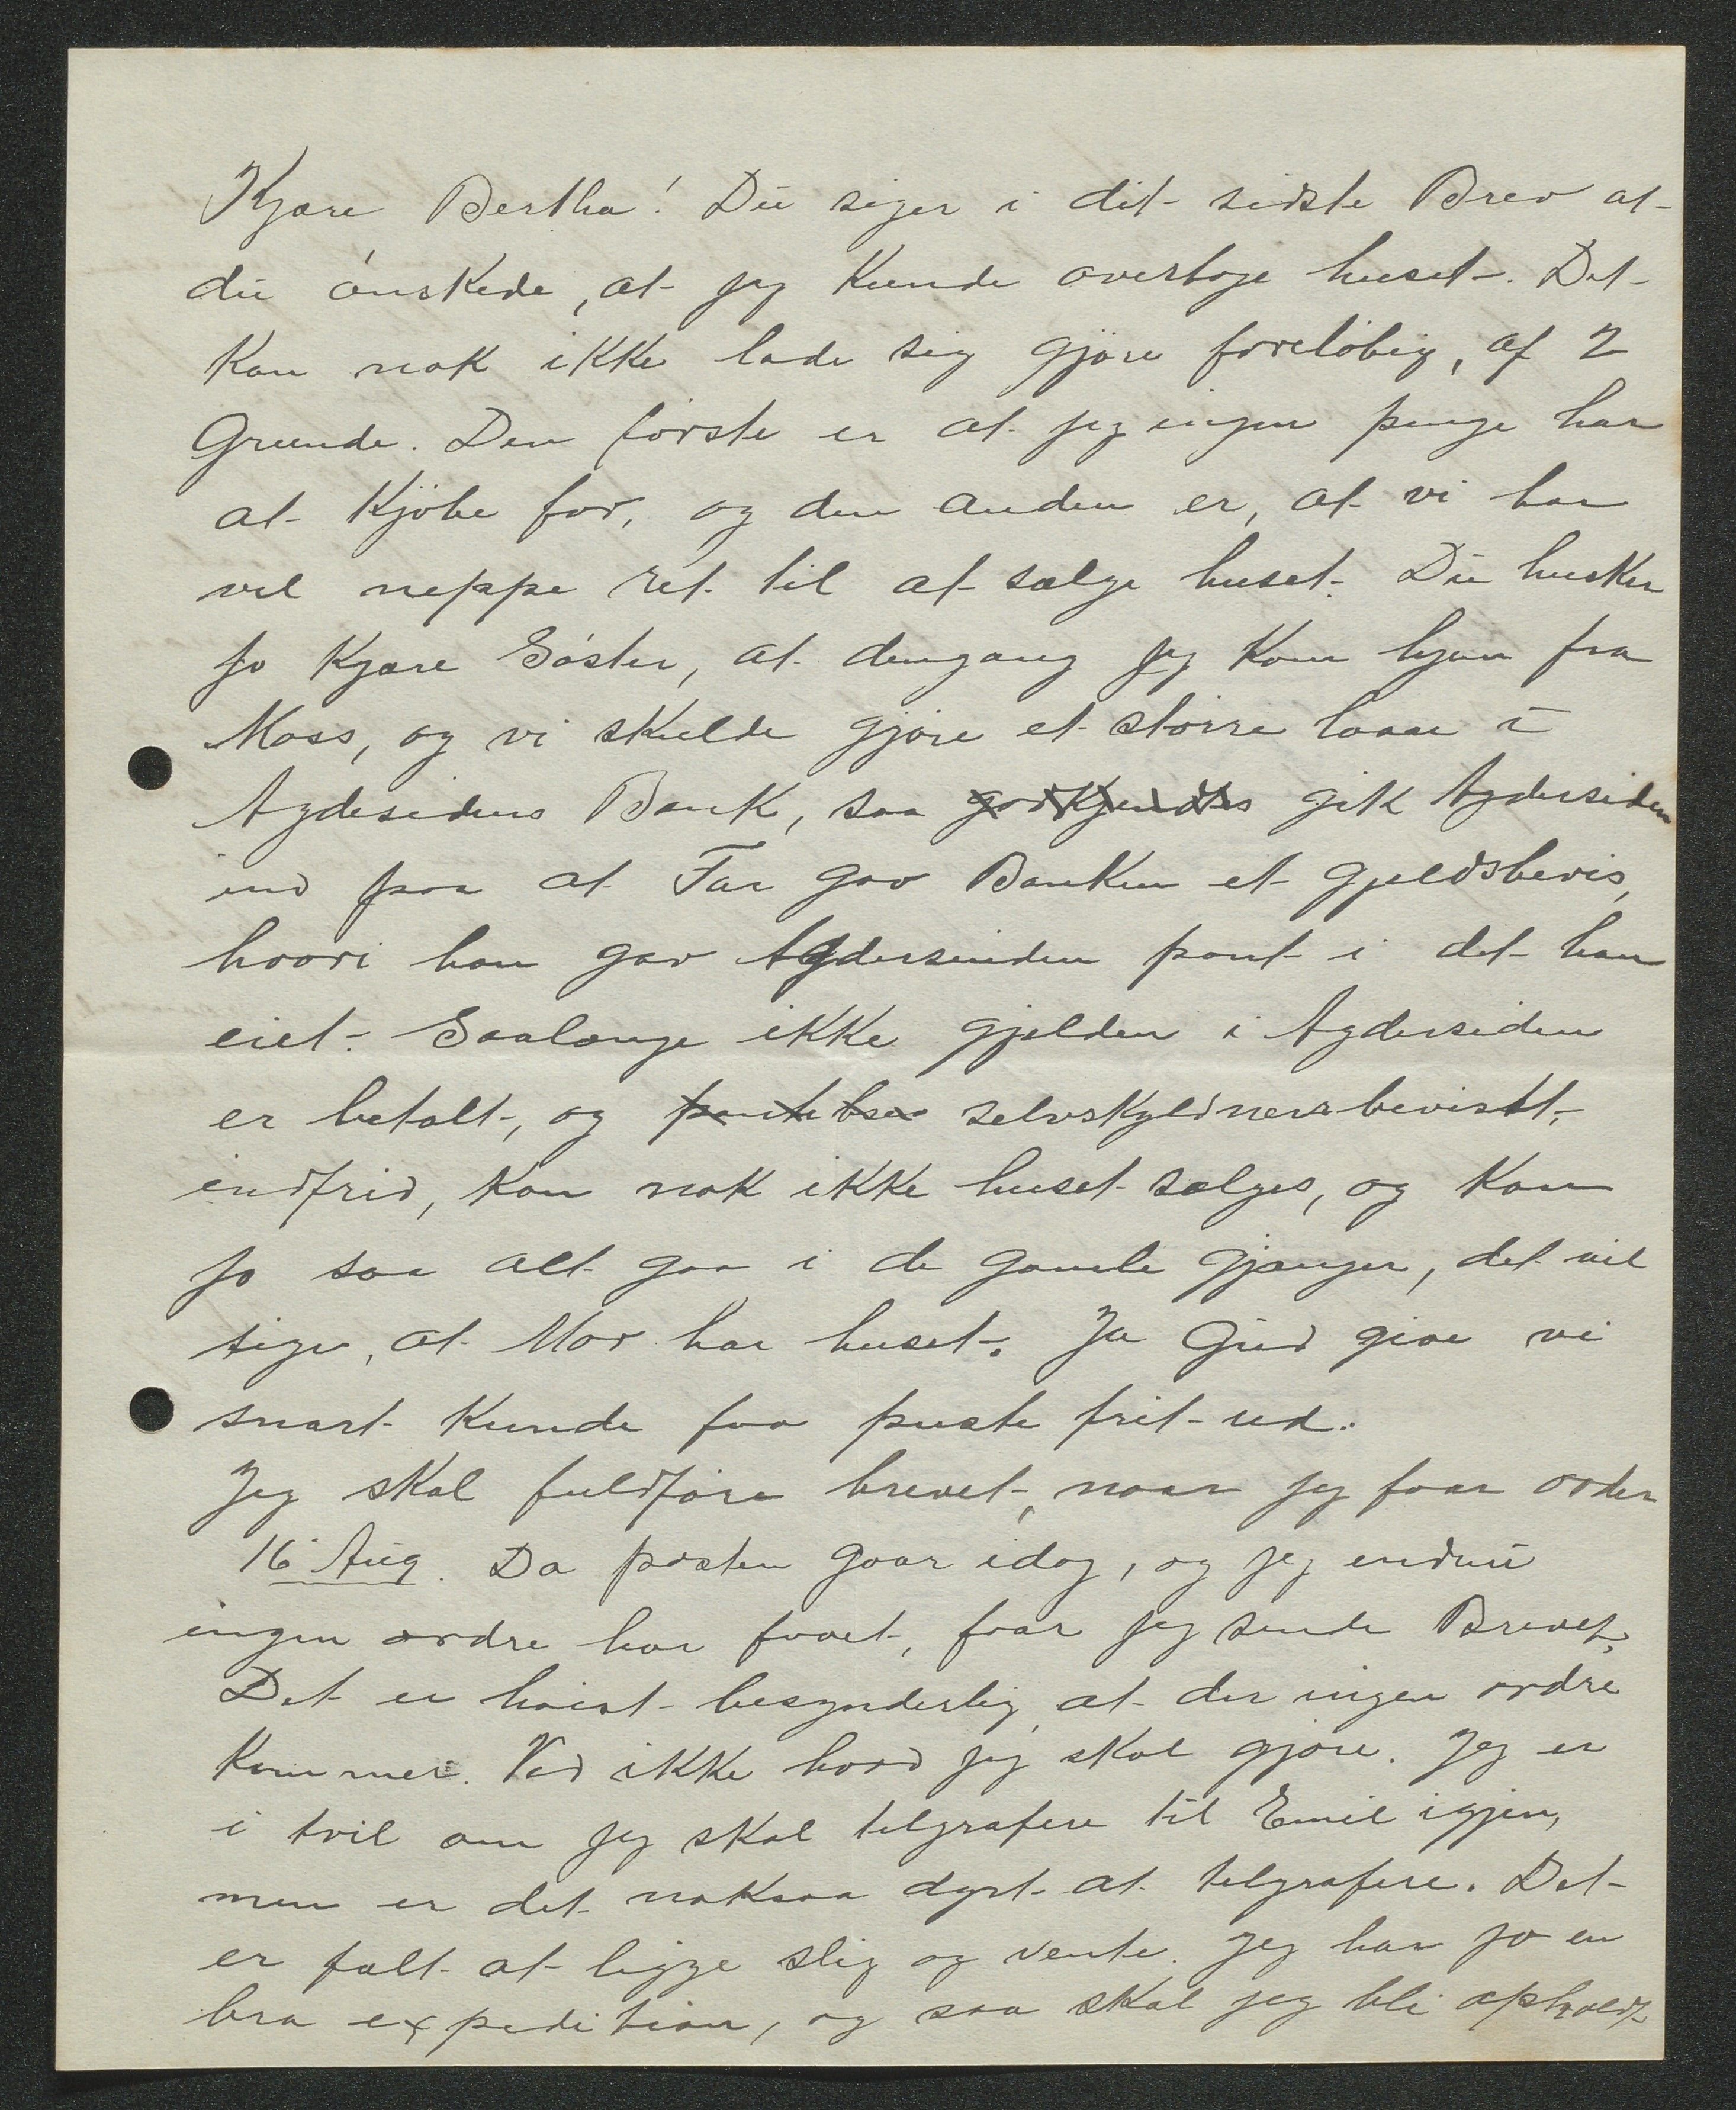 Kjære Bertha! Du siger i dit sidste Brev at
du ønskede, at jeg kunde overtage huset. Det
kan nok ikke lade sig gjøre foreløbig, af 2
Grunde. Den første er at jeg ingen penge har
at kjøbe for, og den anden er, at vi har
vel neppe ret til at sælge huset. Du husker
jo kjære Søster, at dengang jeg kom hjem fra
Moss, og vi skulde gjøre et større laan i
Agdesidens Bank, saa godkjendtes gik Agdersiden
ind paa at Far gav Banken et gjeldsbevis,
hvori han gav Agdersinden pant i det han
eiet. Saalænge ikke gjelden i Agdersiden
er betalt, og selvskyldnersbevistt,
indfrid, kan nok ikke huset sælges, og kan
jo saa alt gaa i de gamle gjænger, det vil
sige, at Mor har huset. Ja Gud give vi
snart kunde faa puste frit ud.
Jeg skal fuldføre brevet, naar jeg faar order
16 Aug. Da posten gaar idag, og jeg endnu
ingen ordre har faaet, faar jeg sende Brevet,
Det er høist besynderlig at der ingen ordre
kommer. Ved ikke hvad jeg skal gjøre. Jeg er
i tvil om jeg skal telgrafere til Emil igjen,
men er det noksaa dyrt at telgrafere. Det
er fælt at ligge slig og vente. Jeg har jo en
bra expedition, og saa skal jeg bli opholdt